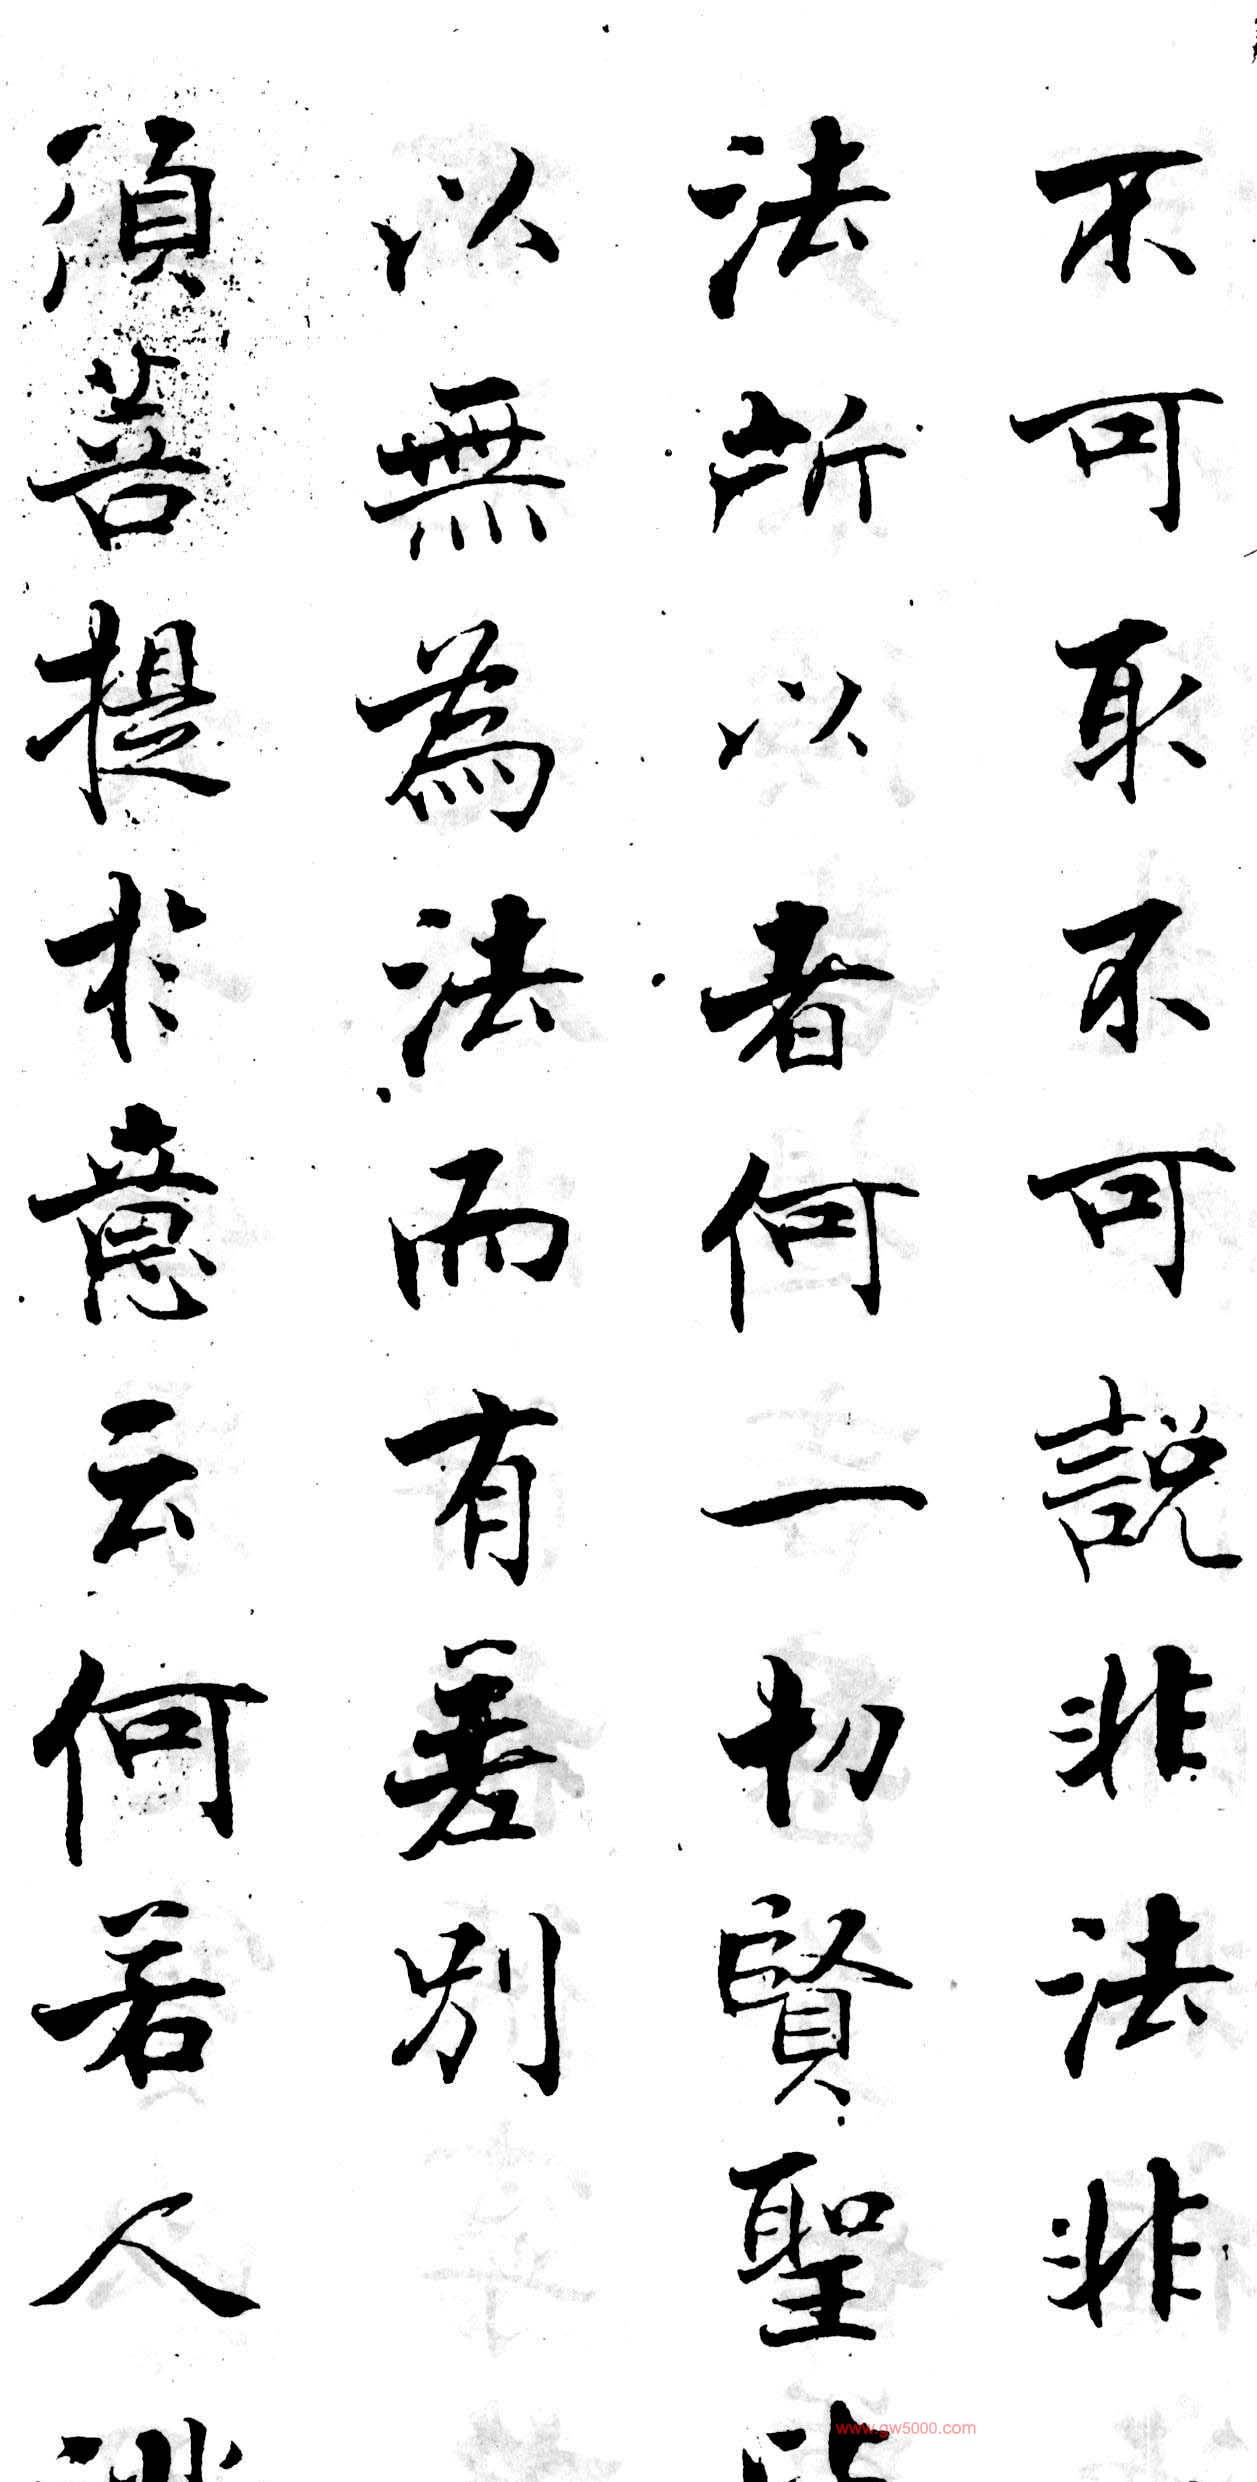 不可取不可說非法非
法所以者何一切賢聖
以無為法而有差別
須菩提於意云何若人
www.gw5000.com